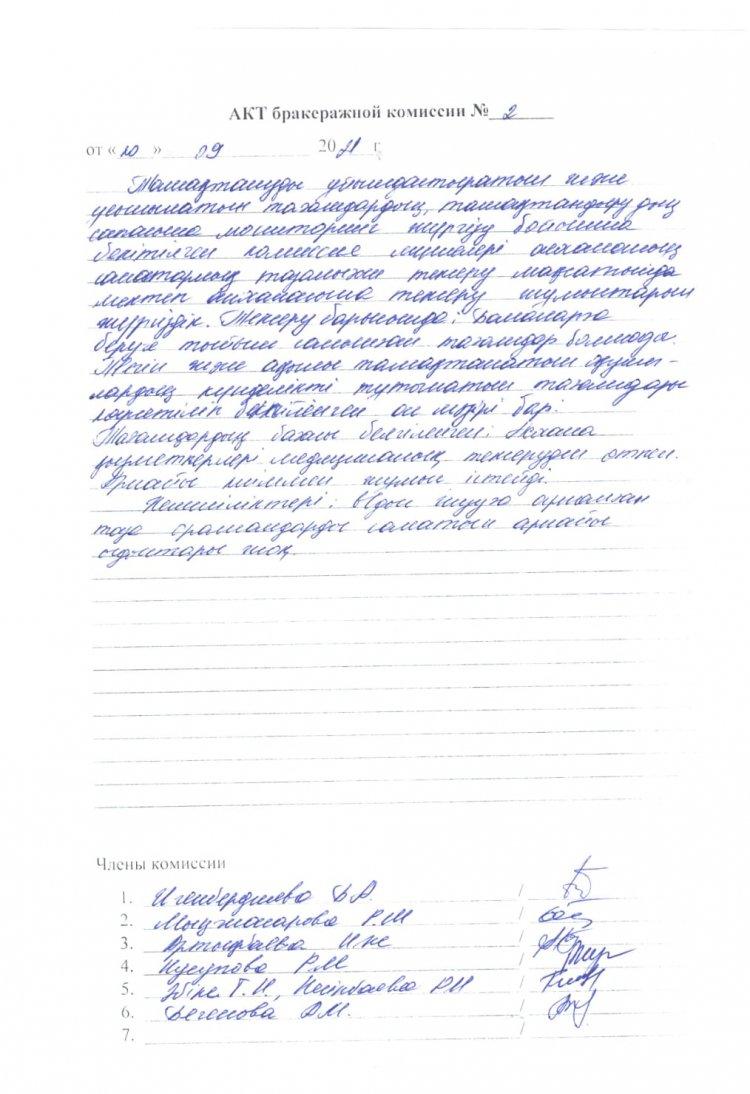 АКТ бракеражной комиссии № 2
от « 10 » 09 2021 г.
Тамақтануды ұйымдастыратын және
ұсынылатын тағамдардың, тамақтандырудың
сапасына мониторинг жүргізу бойынша
бекітілген комиссия мүшелері асхананың
санитарлық тазалығын тексеру мақсатында
мектеп асханасына тексеру жұмыстарын
жүргіздік. Тексеру барысында: Балаларға
беруге тыйым салынған тағамдар болмады.
Тегін және ақылы тамақтанатын оқушы-
лардың күнделікті тұтынатын тағамдары
көрсетіліп бекітілген ас мәзірі бар.
Тағамдардың бағасы белгіленген. Асхана
қызметкерлері медициналық тексеруден өткен.
Арнайы киіммен жұмыс істейді.
Кемшіліктері: ыдыс жууға арналған
таза орамалдарды салатын арнайы
ыдыстары жоқ.
Члены комиссии
1. Игенбердиева Б.А. /
2. Мыңжасарова Р.М /
3. Артықбаева /
4. Жүсупова Р.М /
5. Т.И., /
6. А.М. /
7. /